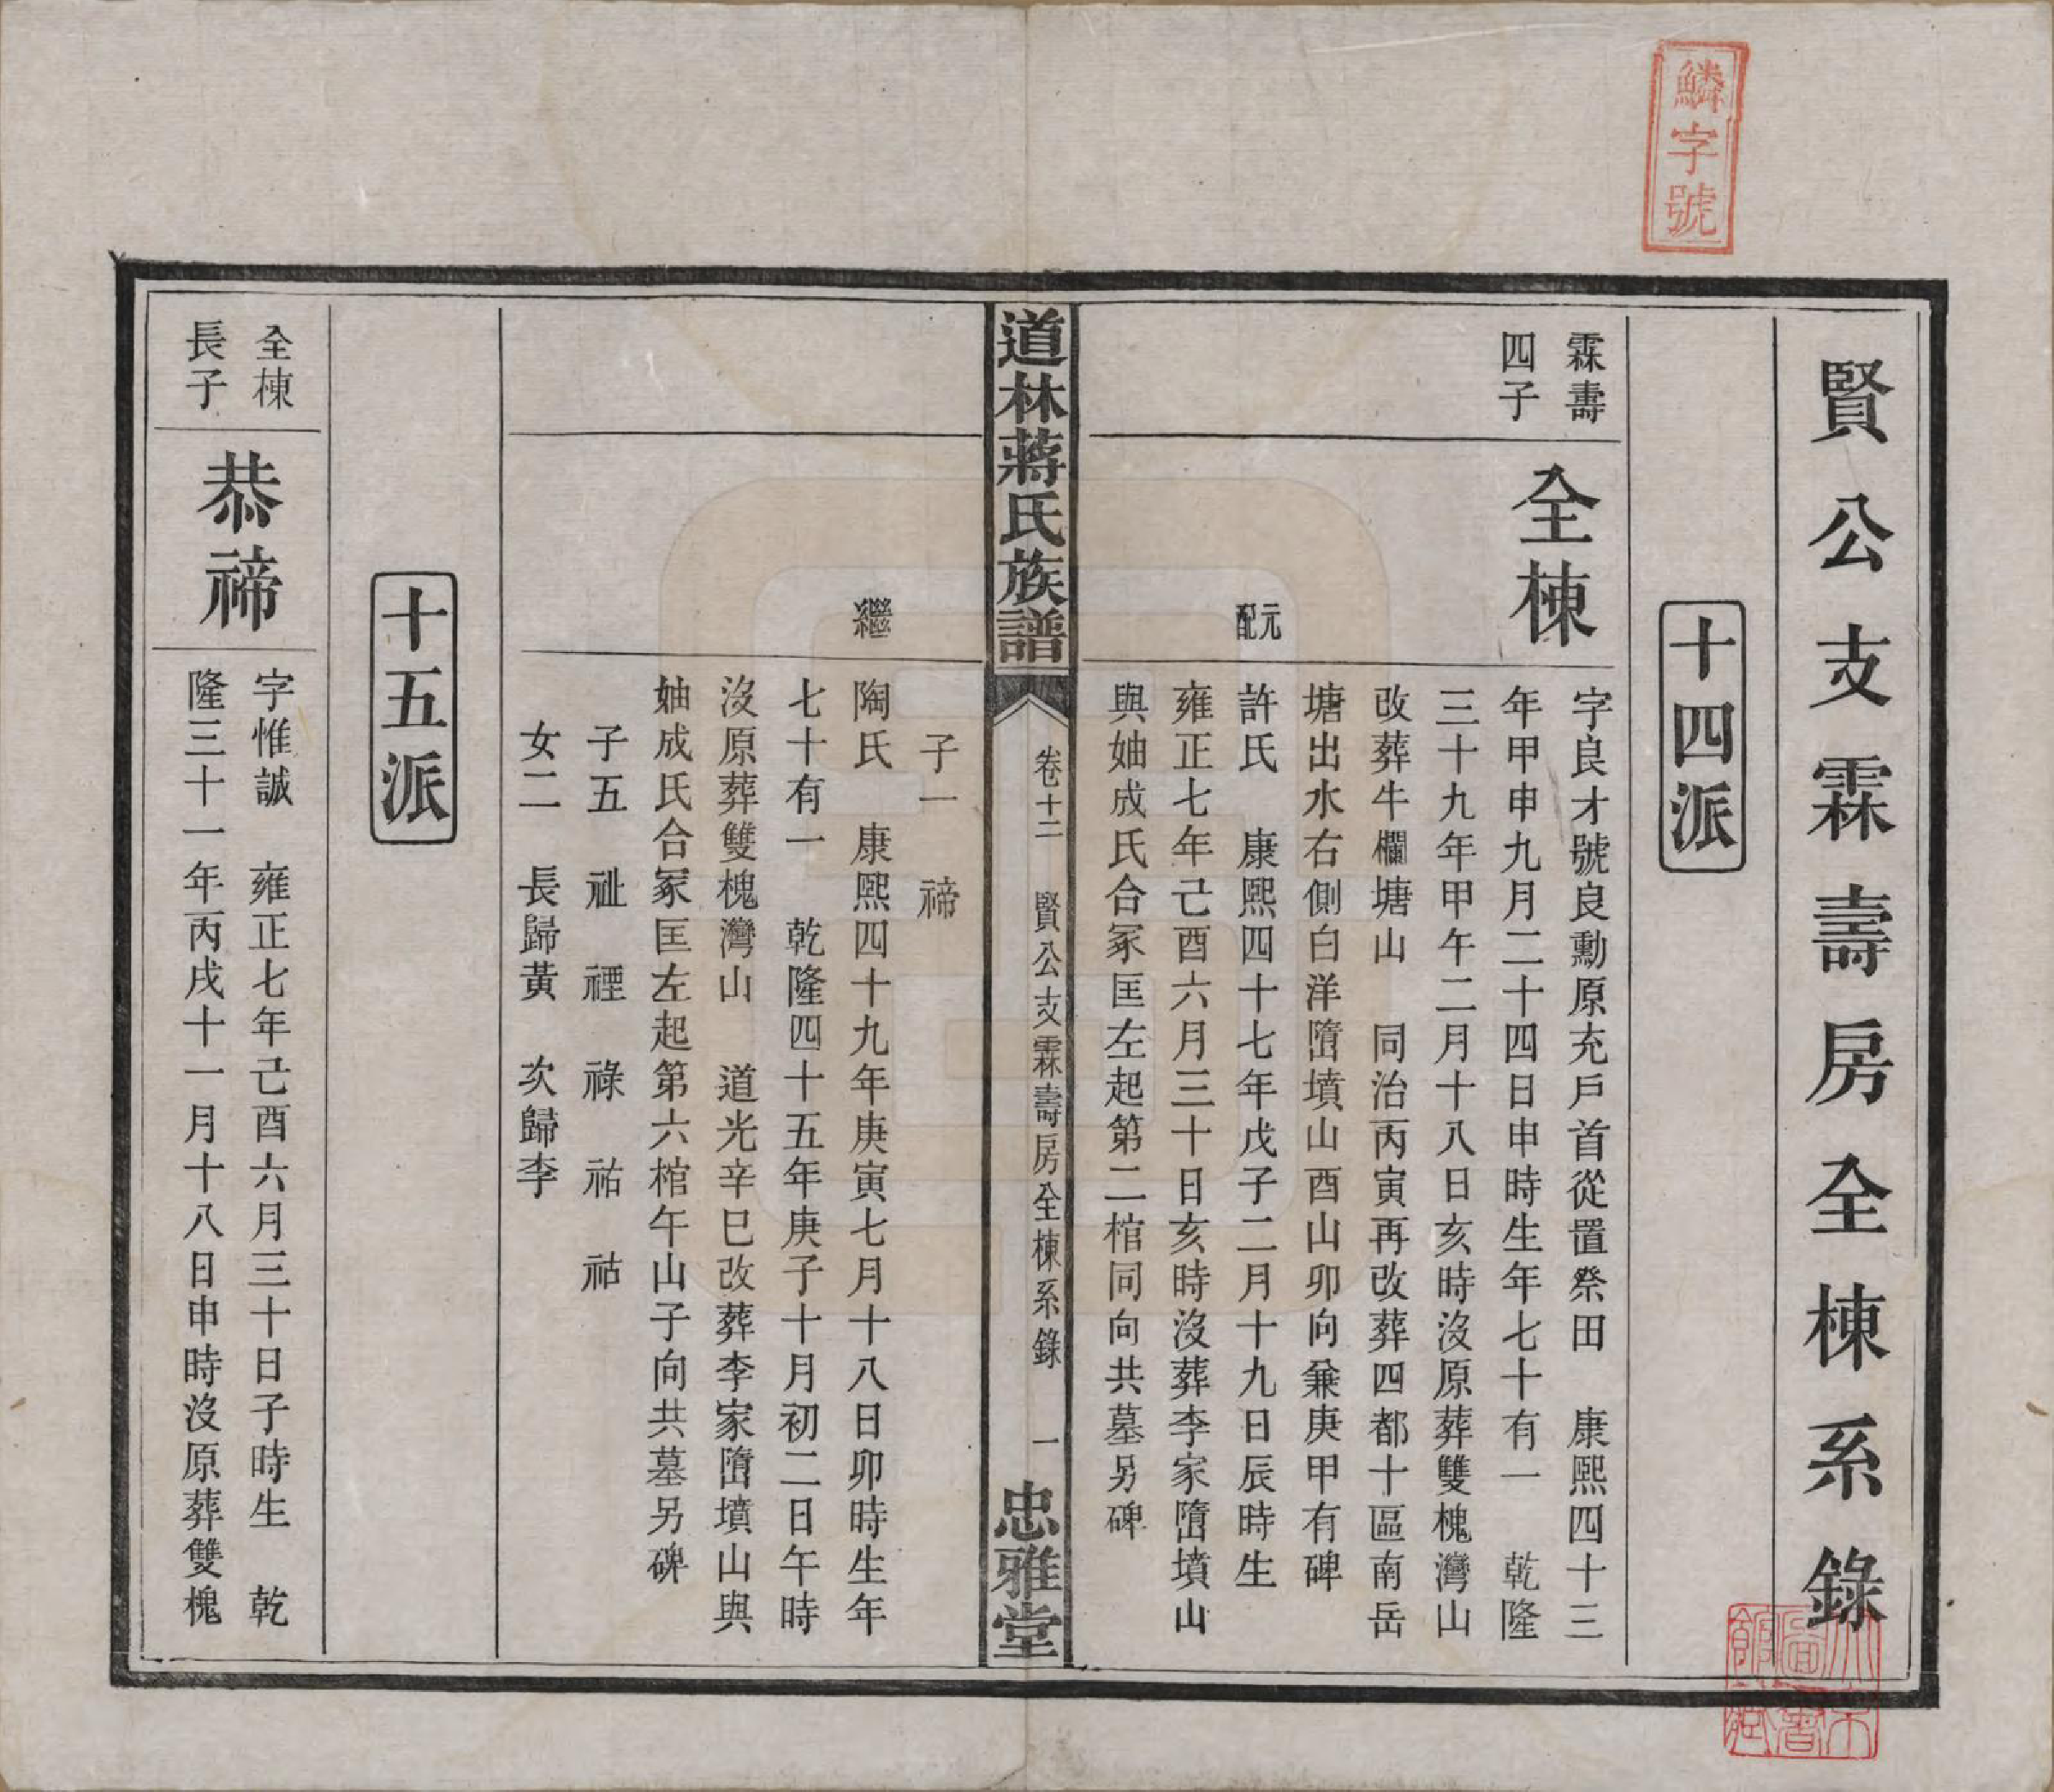 鱗字號
賢公支霖壽房全棟系錄
十四派
霖壽
四子
全棟
字良才號良勳原充戶首從置祭田　康熙四十三
年甲申九月二十四日申時生年七十有一　乾隆
三十九年甲午二月十八日亥時沒原葬雙槐灣山
改葬牛欄塘山　同治丙寅再改葬四都十區南岳
塘出水右側白洋墮墳山酉山卯向兼庚甲有碑
元配
許氏　康熙四十七年戊子二月十九日辰時生
雍正七年己酉六月三十日亥時沒葬李家墮墳山
與妯成氏合冢匡左起第二棺同向共墓另碑
道林蔣氏族譜
卷十二　賢公支霖壽房全棟系錄　一
忠雅堂
子一　禘
繼
陶氏　康熙四十九年庚寅七月十八日卯時生年
七十有一　乾隆四十五年庚子十月初二日午時
沒原葬雙槐灣山　道光辛巳改葬李家墮墳山與
妯成氏合冢匡左起第六棺午山子向共墓另碑
子五　祉　禋　祿　祐　祜
女二　長歸黃　次歸李
十五派
全棟
長子
恭禘
字惟誠　雍正七年己酉六月三十日子時生　乾
隆三十一年丙戌十一月十八日申時沒原葬雙槐